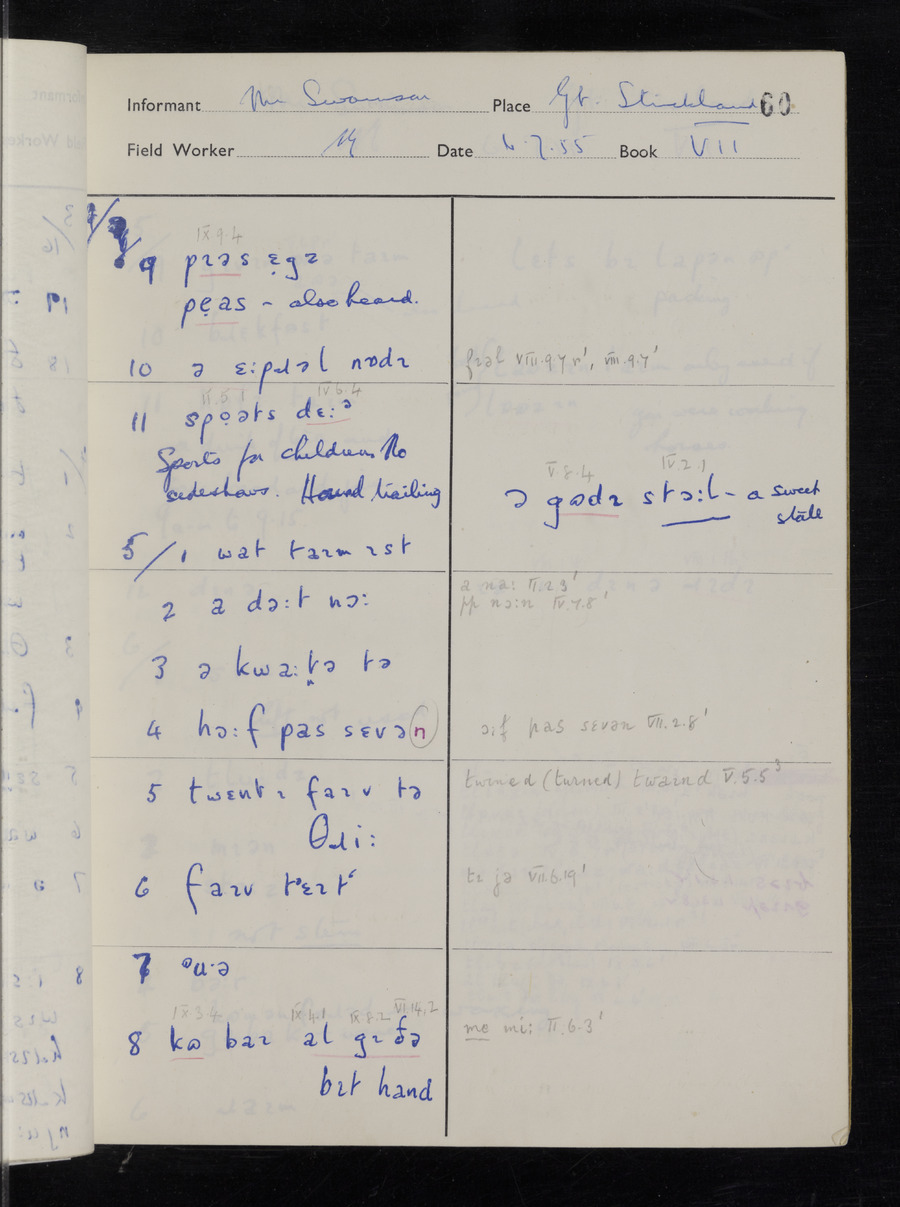 Informant Mr Swanson Place Gt. Strickland 60
Field Worker Date 6.7.55 Book VII
IX 9.4
9 pɹəs ɛ̣gz
pẹas – also heard.
10 ə ɛ:pɹəl nɒdɪ
fɹəl VIII.9.7 n', VIII.9.7'
II.5.1 IV.6.4
11 spọəts dɛ:ᵊ
Sports for children No
sideshows. Hound trailing
V.8.4 IV.2.1
ə gɷdɪ stɔ:l – a sweet
stall
5/1 wat taɪm ɪst
2 a dɔ:t nɔ:
a nɔ: II.2.3'
pp nɔ:n IV.7.8'
3 ə kwa:ṭə tə
4 hɔ:f pas sɛvə(n)
ɔ:f pas sɛvən VII.2.8'
5 twɛntɪ faɪv tə
θɹi:
turned (turned) twaɪnd V.5.5³
6 faɪv tɛɪt
tɪ jə VII.6.19'
7 ᵒu·ə
IX 3.4 IX.4.1 IX 8.2 VI.14.2
8 kɷ baɪ al gɪ ðə
me mi: II.6.3'
bɪt hand